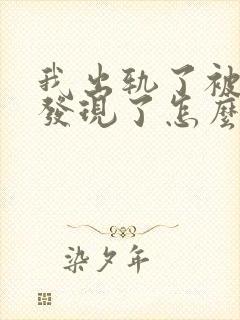 我出轨了被
發現了怎麼
染夕年